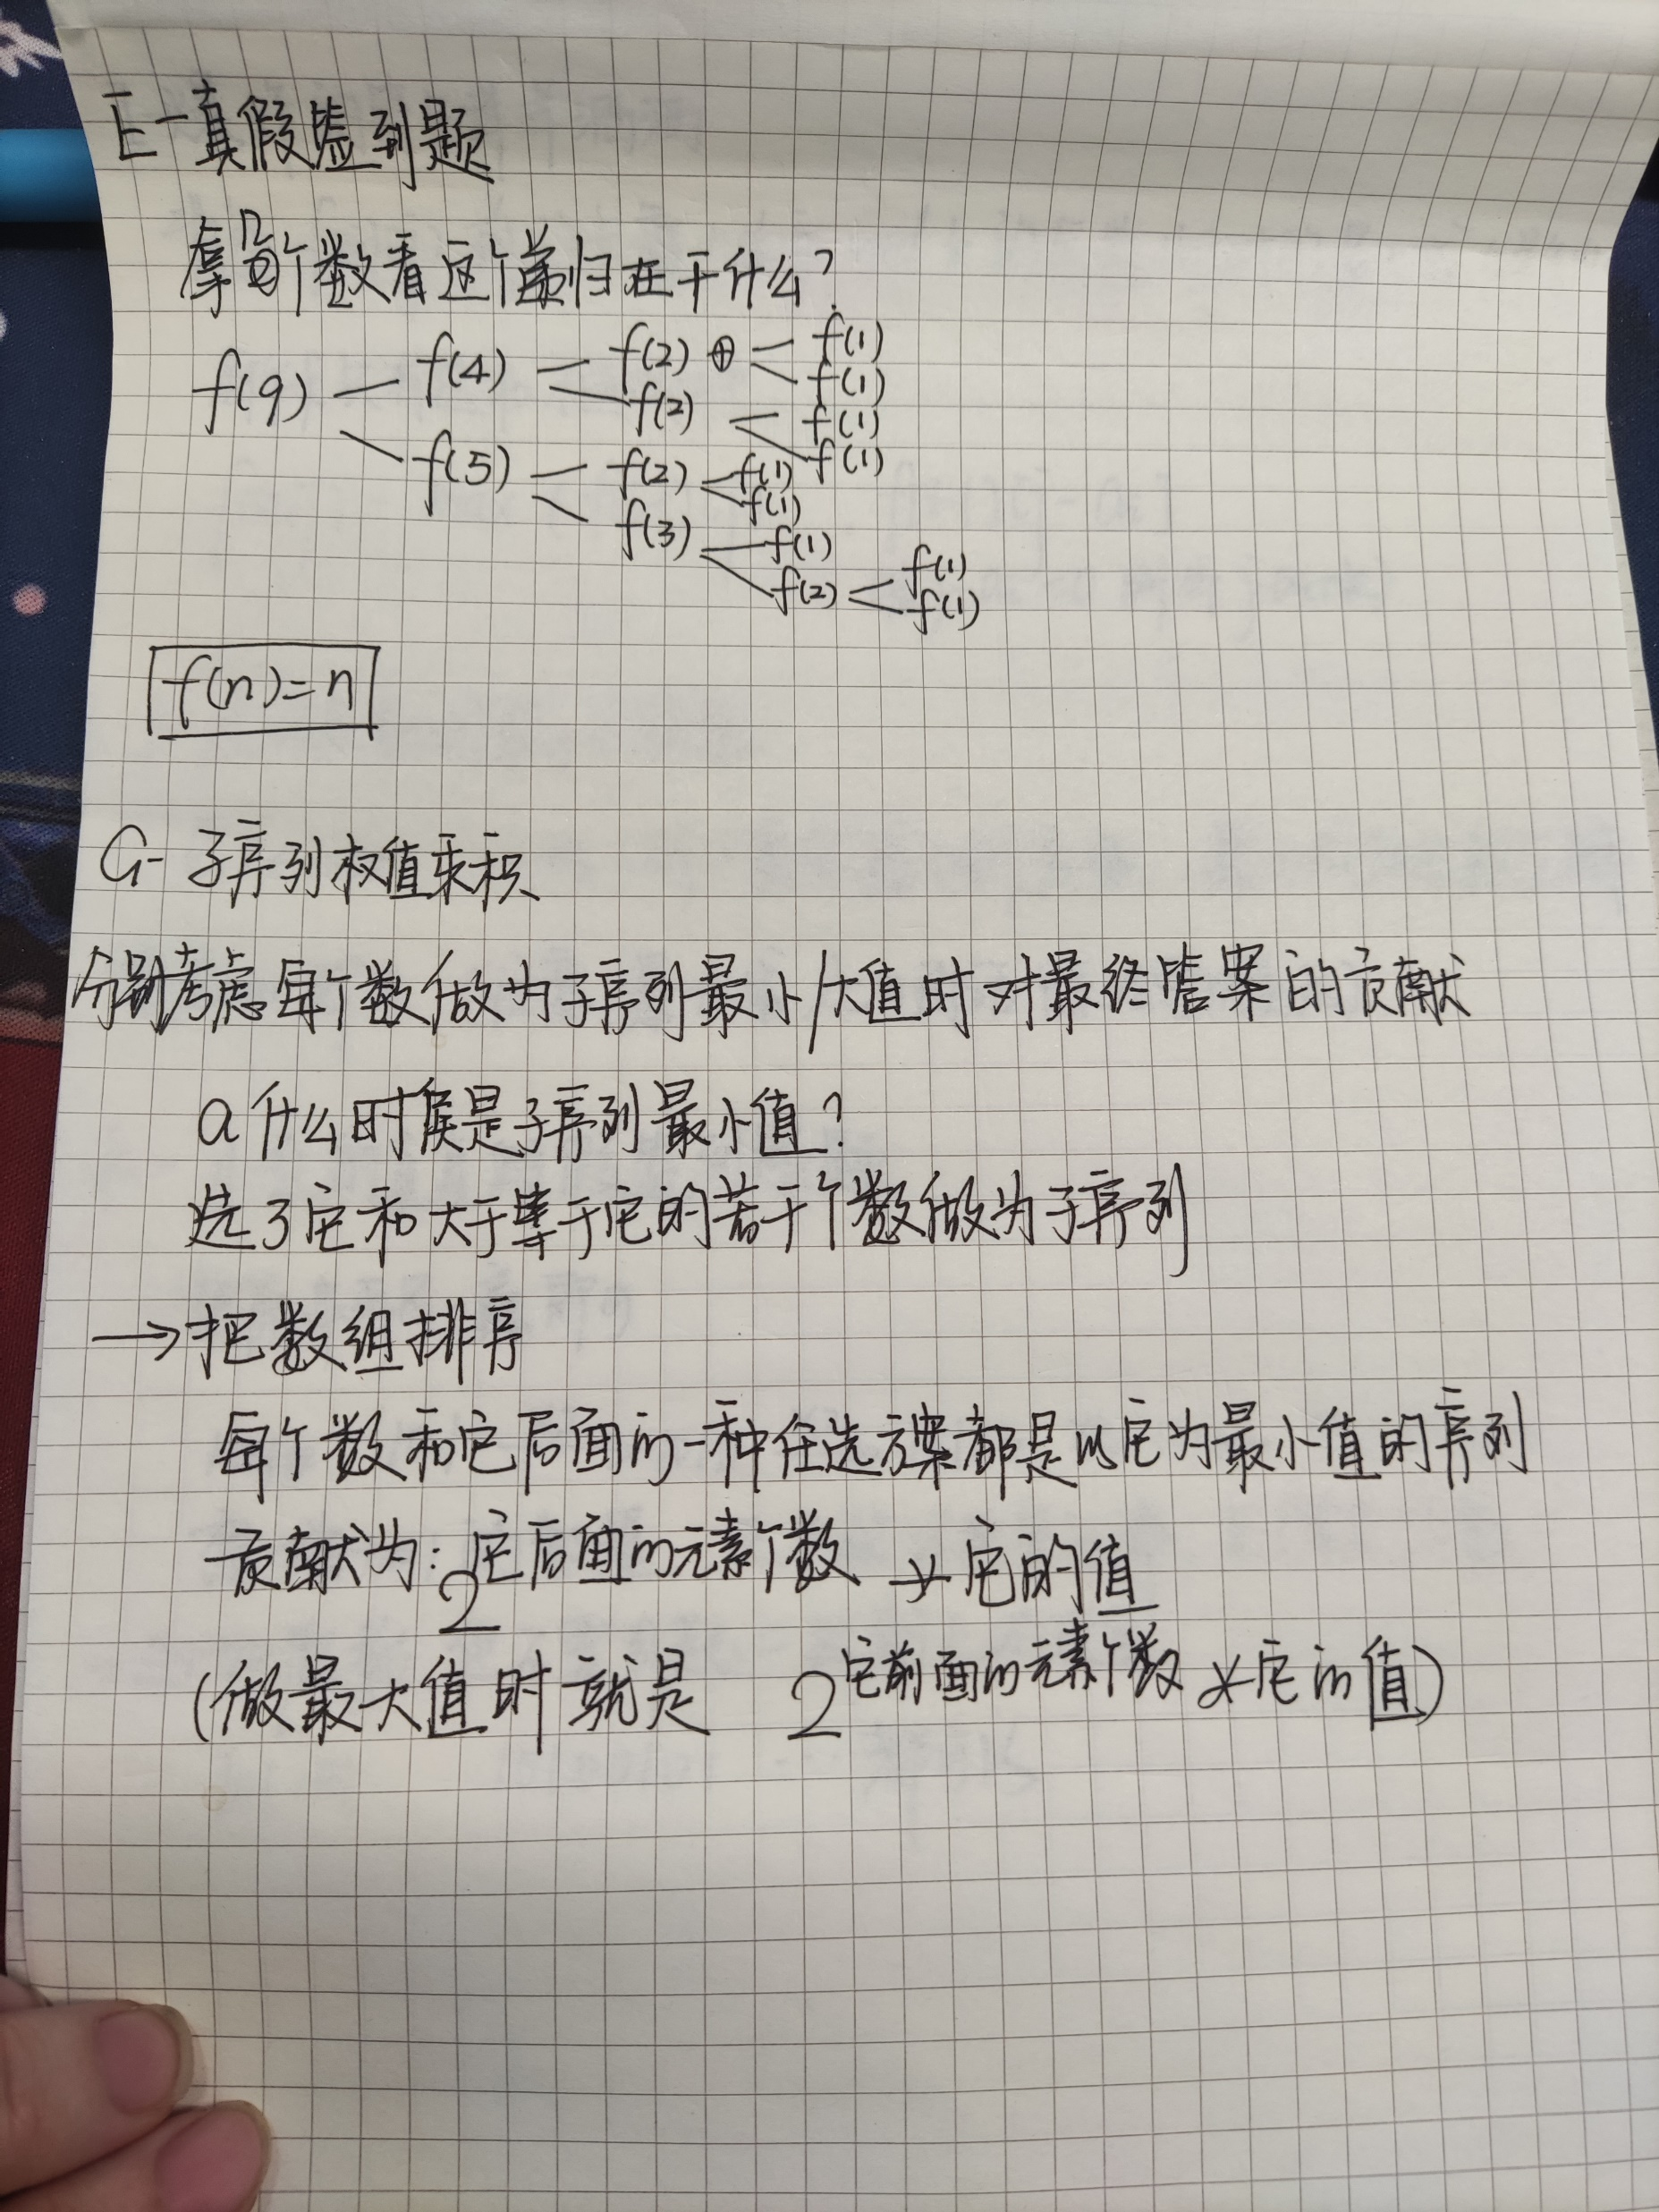 E-真假签到题
拿几个数看这个递归在干什么?
f(9) — f(4) — f(2) ⊕ — f(1)
f(1)
f(2) f(1)
f(1)
f(5) — f(2) f(1)
f(1)
f(3) f(1)
f(2) f(1)
f(1)
f(n)=n
G-子序列权值乘积
分别考虑每个数做为子序列最小/大值时对最终答案的贡献
a什么时候是子序列最小值?
选了它和大于等于它的若干个数做为子序列
→把数组排序
每个数和它后面的一种任选方案都是以它为最小值的序列
贡献为:2^它后面的元素个数 × 它的值
(做最大值时就是 2^它前面的元素个数 × 它的值)